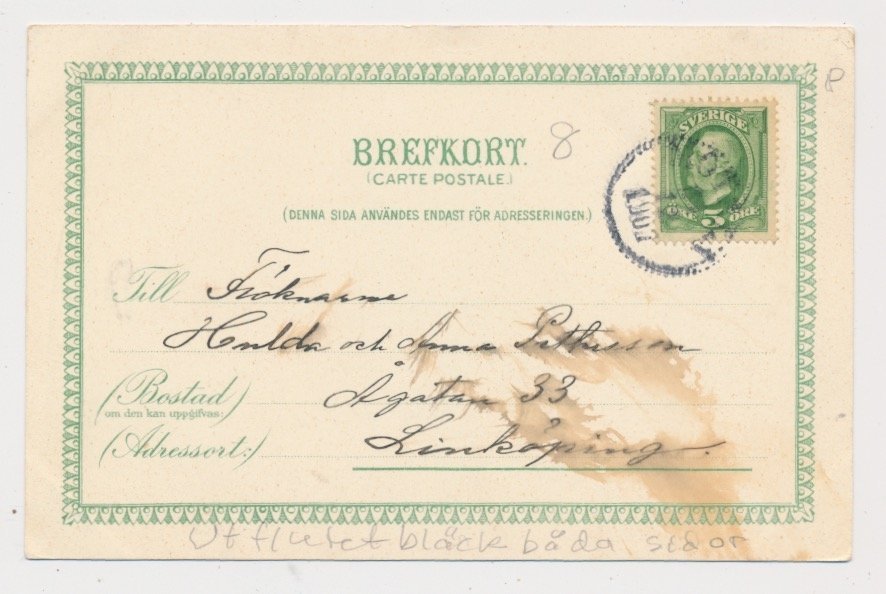 P
SVERIGE
5
ÖRE
1907
BREFKORT. 8
(CARTE POSTALE.)
(DENNA SIDA ANVÄNDES ENDAST FÖR ADRESSERINGEN.)
Till Fröknarne
Hulda och Anna
(Bostad) Ågatan 33
om den kan uppgifvas:
(Adressort:) Linköping.
Utflutet bläck båda sidor